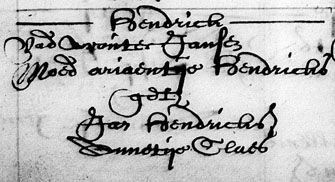 Hendrick
Vad wouter Jansz
Moed ariaentije Hendricks
get
Jan Hendricksz
Annetije Claes